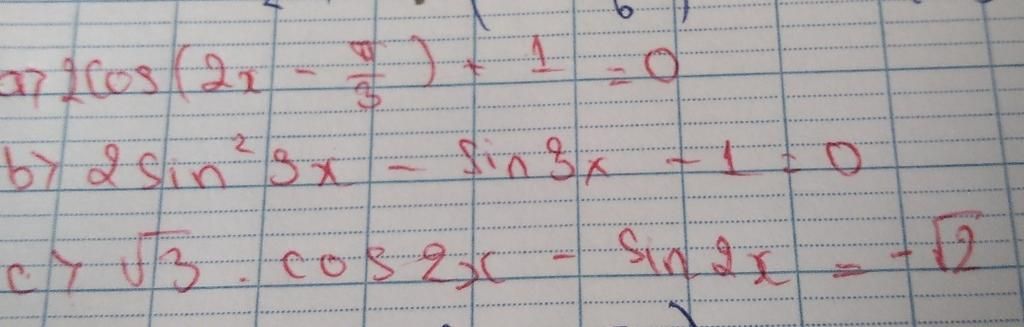 a> 2cos(2x - π/3) + 1 = 0
b> 2sin² 3x - sin3x - 1 = 0
c> √3 . cos2x - sin2x = -√2